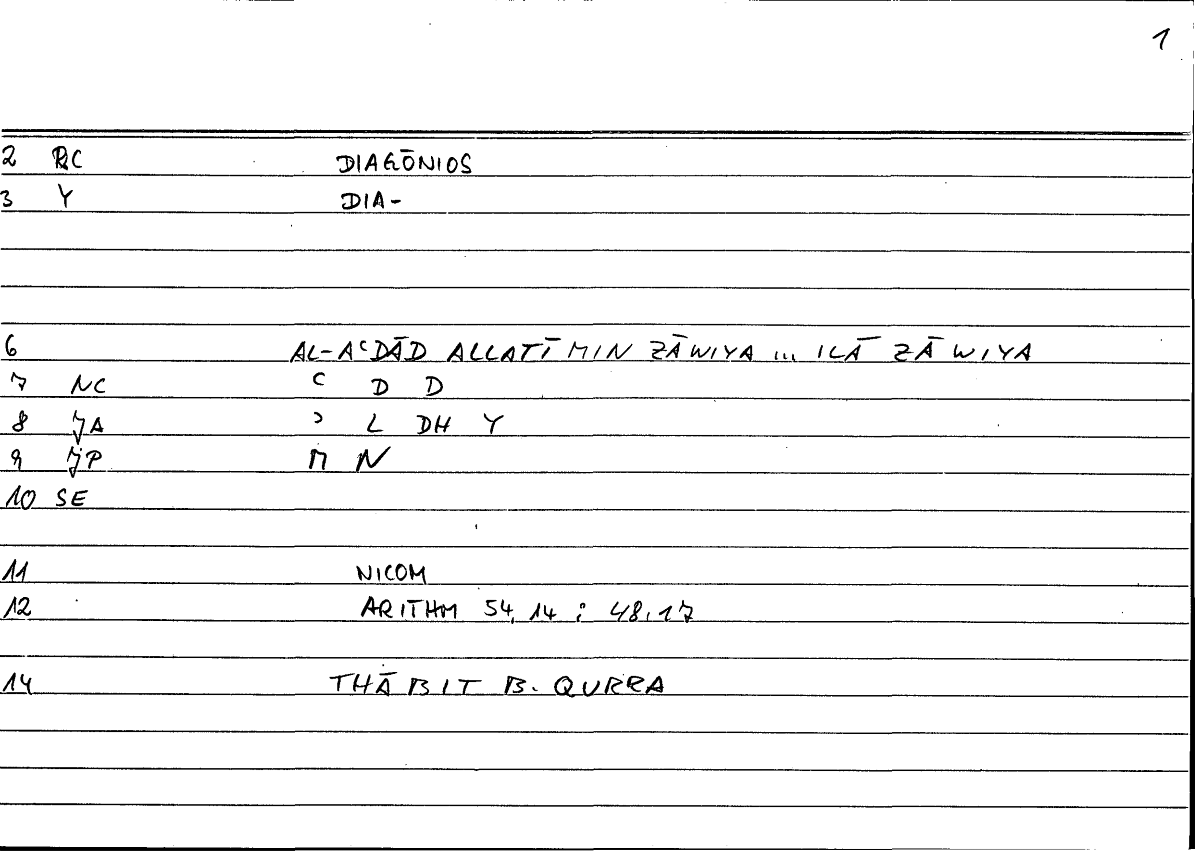 1
2 RC DIAGŌNIOS
3 Y DIA-
6 AL-AʿDĀD ALLATĪ MIN ZĀWIYA ... ILĀ ZĀWIYA
7 NC ʿ D D
8 JA ʾ L DH Y
9 JP M N
10 SE
11 NICOM
12 ARITHM 54,14 : 48,17
14 THĀBIT B. QURRA